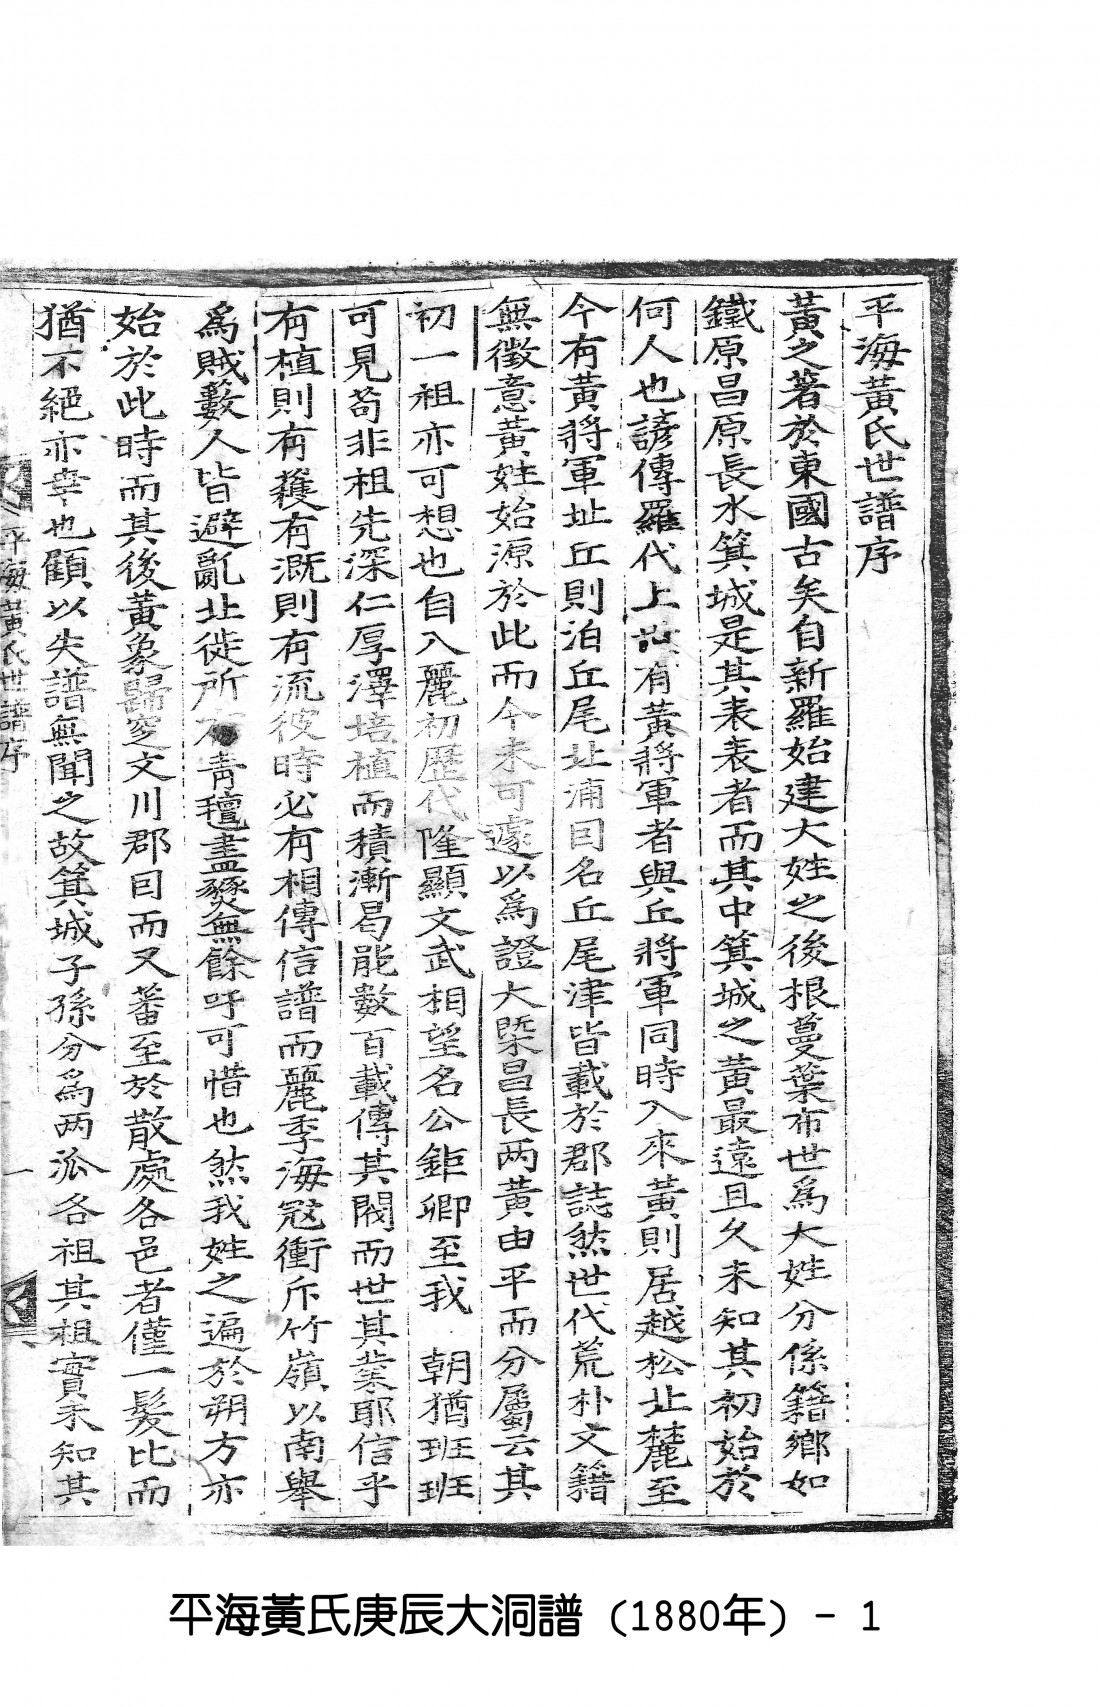 平海黃氏世譜序
黃之著於東國古矣自新羅始建大姓之後根蔓葉布世爲大姓分係籍鄉如
鐵原昌原長水箕城是其表表者而其中箕城之黃最遠且久未知其初始於
何人也諺傳羅代上世有黃將軍者與丘將軍同時入來黃則居越松北麓至
今有黃將軍址丘則泊丘尾北浦因名丘尾津皆載於郡誌然世代荒朴文籍
無徵意黃姓始源於此而今未可遽以爲證大槩昌長两黃由平而分屬云其
初一祖亦可想也自入麗初歷代隆顯文武相望名公鉅卿至我 朝猶班班
可見苟非祖先深仁厚澤培植而積漸曷能數百載傳其閥而世其業耶信乎
有植則有穫有漑則有流彼時必有相傳信譜而麗季海冦衝斥竹嶺以南擧
爲賊藪人皆避亂北徙所有靑氊盡燹無餘吁可惜也然我姓之遍於朔方亦
始於此時而其後黃象歸定文川郡因而又蕃至於散處各邑者僅一髮比而
猶不絕亦幸也顧以失譜無聞之故箕城子孫分爲两派各祖其祖實未知其
平海黃氏世譜序
一
平海黃氏庚辰大洞譜 (1880年) - 1